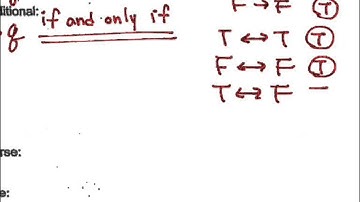 ditional:
q if and only if
F → F T
T ↔ T T
F ↔ F T
T ↔ F
rse:
e: